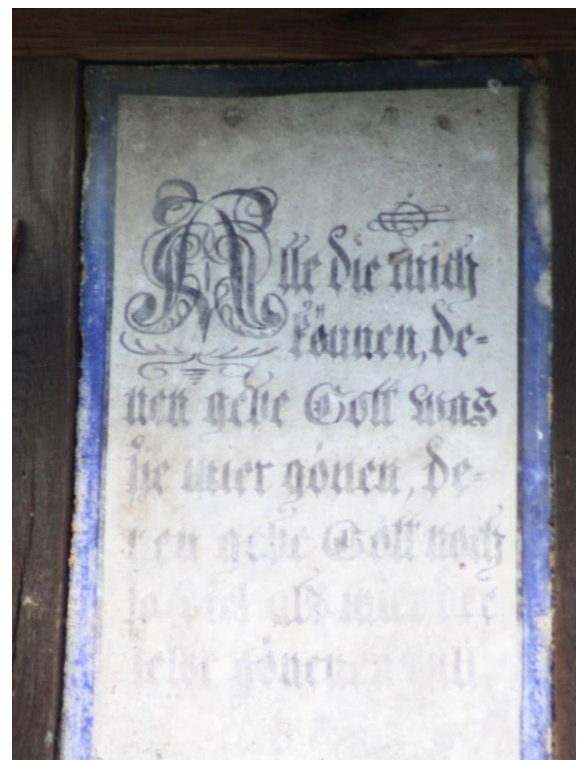 Alle die mich
können, de-
nen gebe Gott was
sie mier gönen, de-
nen gebe Gott noch
so viel als mier der
selbe gönenen will